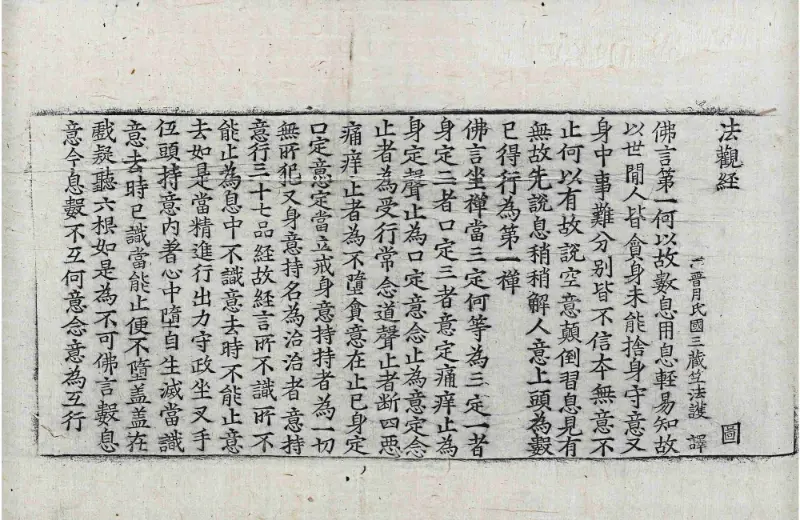 法觀經 圖
西晉月氏國三藏竺法護 譯
佛言第一何以故數息用息輕易知故
以世間人皆貪身未能捨身守意又
身中事難分別皆不信本無意不
止何以有故說空意顛倒習息見有
無故先說息稍稍解人意上頭為數
已得行為第一禪
佛言坐禪當三定何等為三定一者
身定二者口定三者意定痛痒止為
身定聲止為口定意念止為意定念
止者為受行常念道聲止者断四惡
痛痒止者為不墮貪意在止已身定
口定意定當立戒身意持持者為一切
無所犯又身意持名為治治者意持
意行三十七品經故經言所不識所不
能止為息中不識意去時不能止意
去如是當精進行出力守政坐叉手
伍頭持意內著心中墮自生滅當識
意去時已識當能止便不墮盖盖在
戲疑聽六根如是為不可佛言數息
意今息數不互何意念意為互行